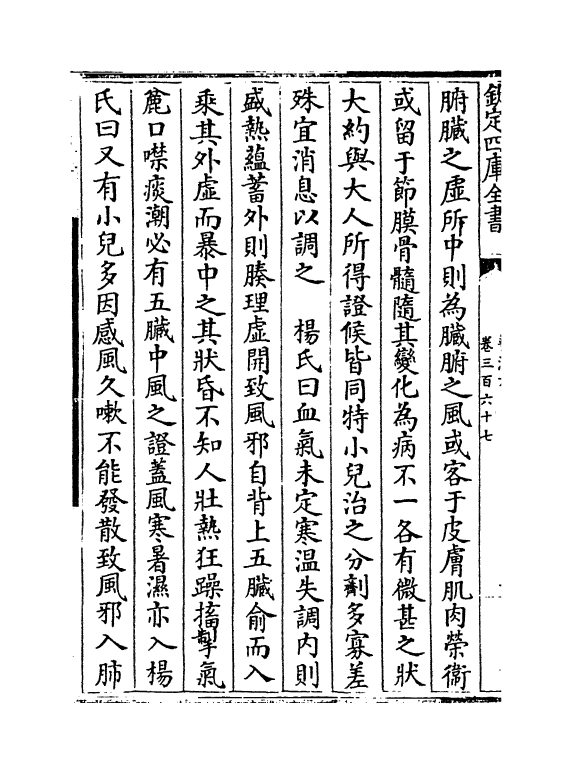 欽定四庫全書
卷三百六十七
腑臟之虛所中則為臟腑之風或客于皮膚肌肉榮衞
或留于節膜骨髓隨其變化為病不一各有微甚之狀
大約與大人所得證候皆同特小兒治之分劑多寡差
殊宜消息以調之　楊氏曰血氣未定寒温失調内則
盛熱藴蓄外則腠理虛開致風邪自背上五臟俞而入
乘其外虛而暴中之其狀昏不知人壯熱狂躁搐掣氣
麄口噤痰潮必有五臟中風之證蓋風寒暑濕亦入楊
氏曰又有小兒多因感風久嗽不能發散致風邪入肺